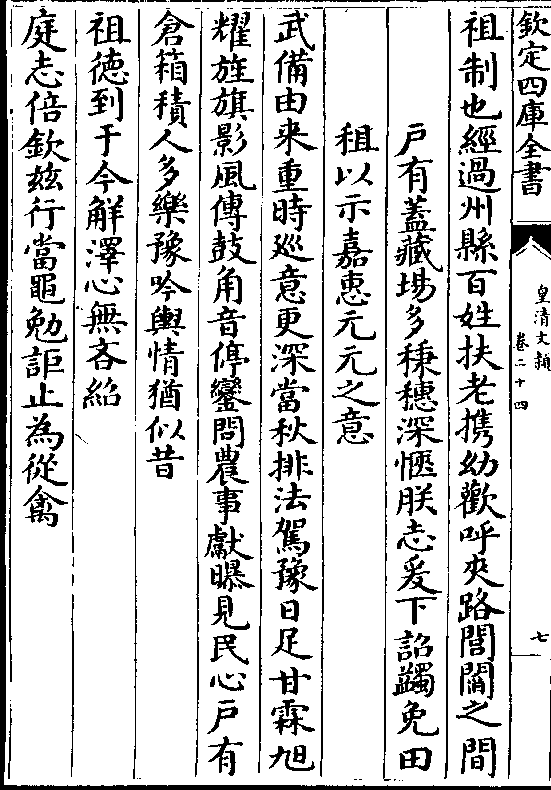 欽定四庫全書
皇清文頴
卷二十四
七
祖制也經過州縣百姓扶老攜幼歡呼夾路閭閻之間
戶有蓋藏場多秉穗深愜朕志爰下詔蠲免田
租以示嘉惠元元之意
武備由来重時廵意更深當秋排法駕豫日足甘霖旭
耀旌旗影風傳鼓角音停鑾問農事獻曝見民心戶有
倉箱積人多樂豫吟輿情猶似昔
祖徳到于今解澤心無吝紹
庭志倍欽兹行當黽勉詎止為從禽